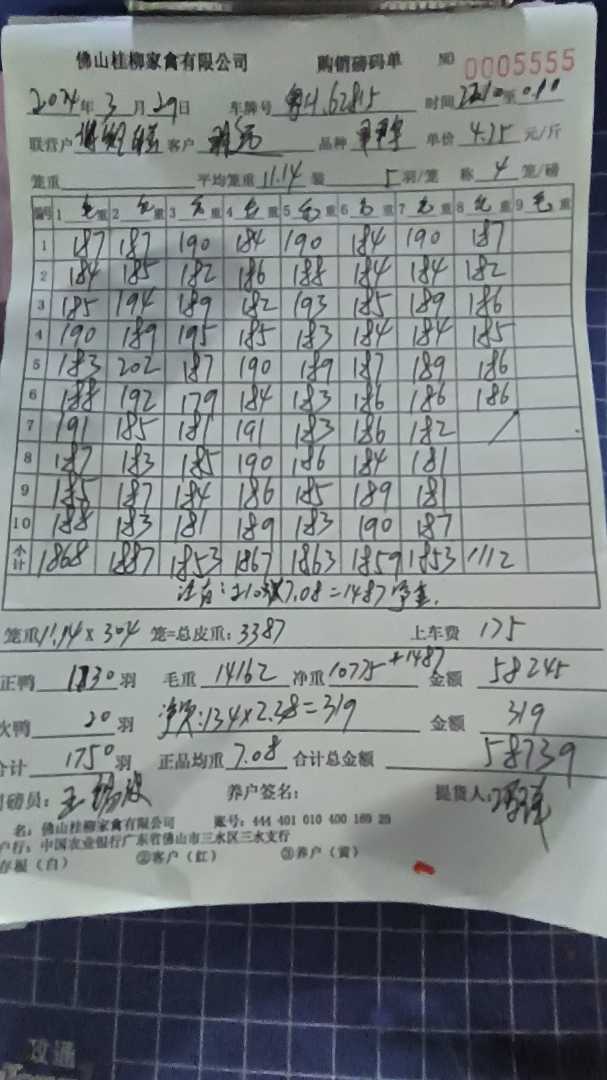 佛山桂柳家禽有限公司 购销磅码单 NO 0005555
2024年3月29日 车牌号 粤H.62815 时间 2210至0.10
联营户 客户 品种 单价 4.25 元/斤
笼重 平均笼重 11.14 装 5 羽/笼 称 4 笼/磅
编号 1 毛重 2 毛重 3 毛重 4 毛重 5 毛重 6 毛重 7 毛重 8 毛重 9 毛重
1 187 187 190 184 190 184 190 187
2 184 185 182 186 188 184 184 182
3 185 194 189 182 193 185 189 186
4 190 189 195 185 183 184 184 185
5 183 202 187 190 189 187 189 186
6 188 192 179 184 183 186 186 186
7 191 185 181 191 183 186 182
8 187 183 185 190 186 184 181
9 185 187 184 186 185 189 181
10 188 183 181 189 183 190 187
小计 1868 1887 1853 1867 1863 1859 1853 1112
210羽×7.08=1487
笼重 11.14 × 304 笼=总皮重: 3387 上车费 175
正鸭 1730 羽 毛重 14162 净重 10775+1487 金额 58245
次鸭 20 羽 134×2.38=319 金额 319
合计 1750 羽 正品均重 7.08 合计总金额 58739
司磅员: 养户签名: 提货人:
名: 佛山桂柳家禽有限公司 账号: 444 401 010 400 169 29
户行: 中国农业银行广东省佛山市三水区三水支行
存根(白) ②客户(红) ③养户(黄)